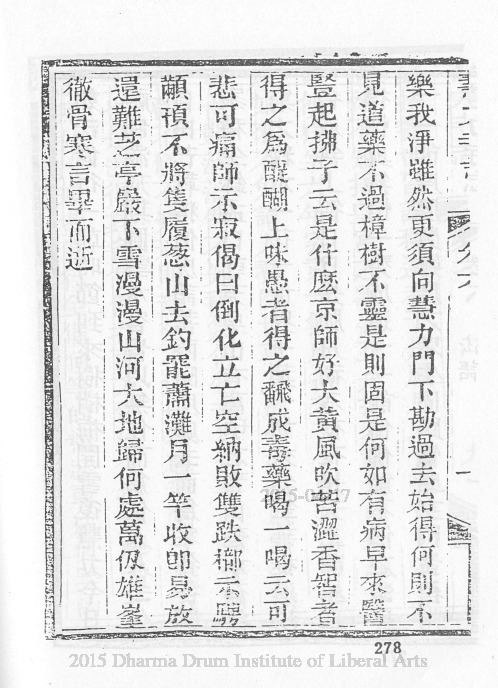 樂我淨雖然更須向慧力門下勘過去始得何則不
見道藥不過樟樹不靈是則固是何如有病早來醫
豎起拂子云是什麼京師好大黃風吹苦澀香智者
得之為醍醐上味愚者得之飜成毒藥喝一喝云可
悲可痛師示寂偈曰倒化立亡空納敗雙趺槨示
顢頇不將隻履葱山去釣罷蕭灘月一竿收即易放
還難芝亭巖下雪漫漫山河大地歸何處萬仭雄峯
徹骨寒言畢而逝
278
2015 Dharma Drum Institute of Liberal Arts